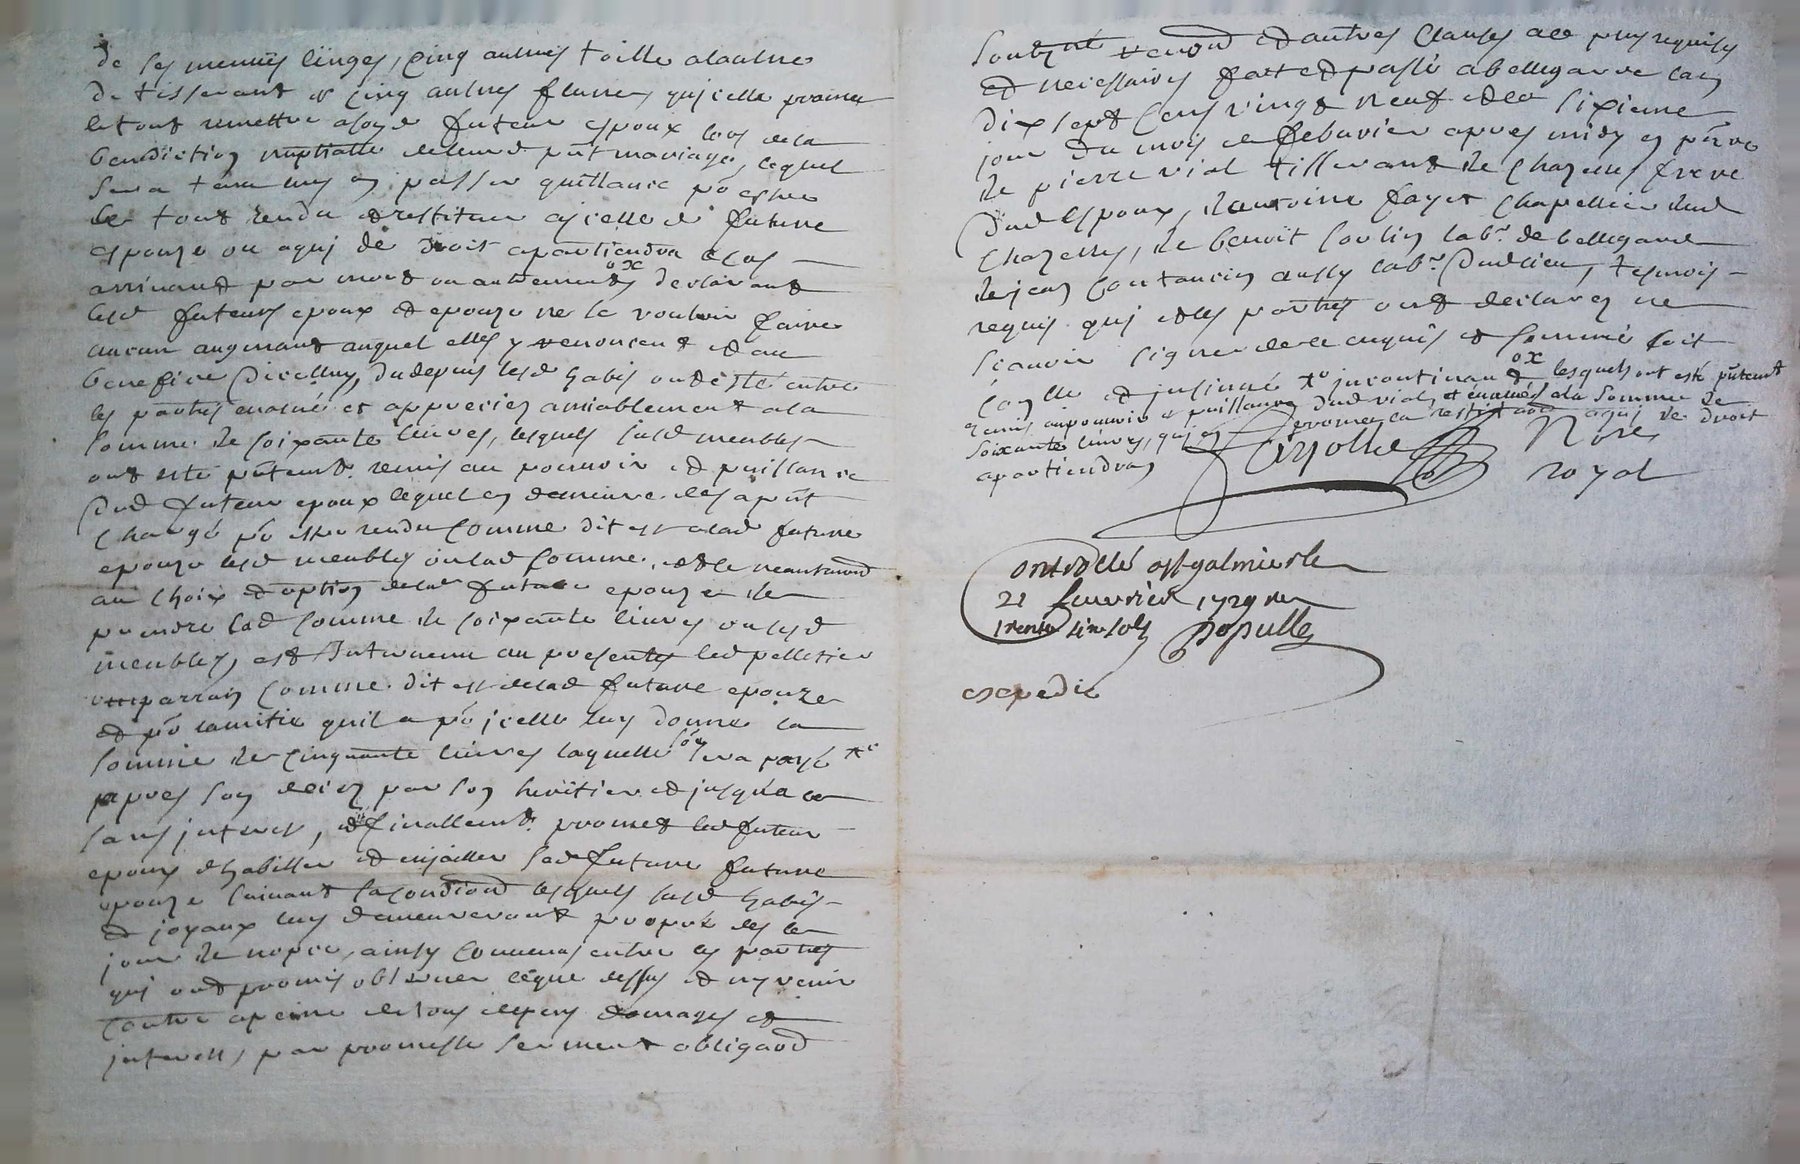 de ses menus linges, cinq aulnes toille alaulne
de tisserant & cinq aulnes flures quicelle promet
le tout remettre aloyd futeur espoux lors dela
benediction nuptialle deleurd pnt mariage, lequel
sera tenu luy en passer quittance po estre
le tout rendu & restitue ajcelle d future
espouze ou aquj de droit apartiendra le cas
arrivant par mort ou autrement declarant
lesd futeurs epoux et epouze ne le vouloir faire
aucun augmant auquel elles y renoncent et au
benefice dicelluy, du depuis lesd habis ont esté entre
les parties evalué et appreciez amiablement ala
somme de soixante livres, lesquels susd meubles
ont esté pntemt remis au pouvoir et puissance
dud futeur epoux lequel en demeure des apnt
chargé po estre rendu comme dit est alad future
epouze lesd meubles ou lad somme, et le neantmoins
au choix et option delad future epouze de
prendre lad somme de soixante livres ou lesd
meubles, est Intervenu au presentes led pelletier
parrain comme dit est delad future epouze
et po lamitie quil a po jcelle luy donne la
somme de cinquante livres laquelle sera payé
apres son deceds par son heritier et jusqua ce
sans jnterest, & finallemt promet led futeur
epoux dhabiller et enjoüller sad future future
epouze suivant sa condiond lesquels susd habis
et joyaux luy demeureront propre des le
jour de nopce, ainsy convenu entre les parties
quj ont promis observer ceque dessus et ny venir
contre apeine de tous depens domages et
jnterests, par promesse serment obligaod
soubzmt renond et autres clauses ace pns requises
et necessaires fait et passé abellegarde lan
dix sept cens vingt neuf et le sixieme
jour du mois de febvrier apres midy en pnce
de pierre vial tisserant de chazelles frere
dud espoux, de antoine fayet chapellier dud
chazelles, de benoit soulin labr. de bellegarde
de jean coutancin aussy labr. dud lieu, tesmois
requis quj et les parties ont declarez ne
scavoir signer de ce enquis et sommé soit
scellé et jnsinué jncontinan & lesquels ont esté pntemt
remis au pouvoir & puissance dud vial, et évalués ala somme de
soixante livres, quj en demeure la restituon aquj de droit
apartiendra
Nore
royal
Controllé a St galmier le
21 fevvrier 1729 Reçu
trente six sols
expedié